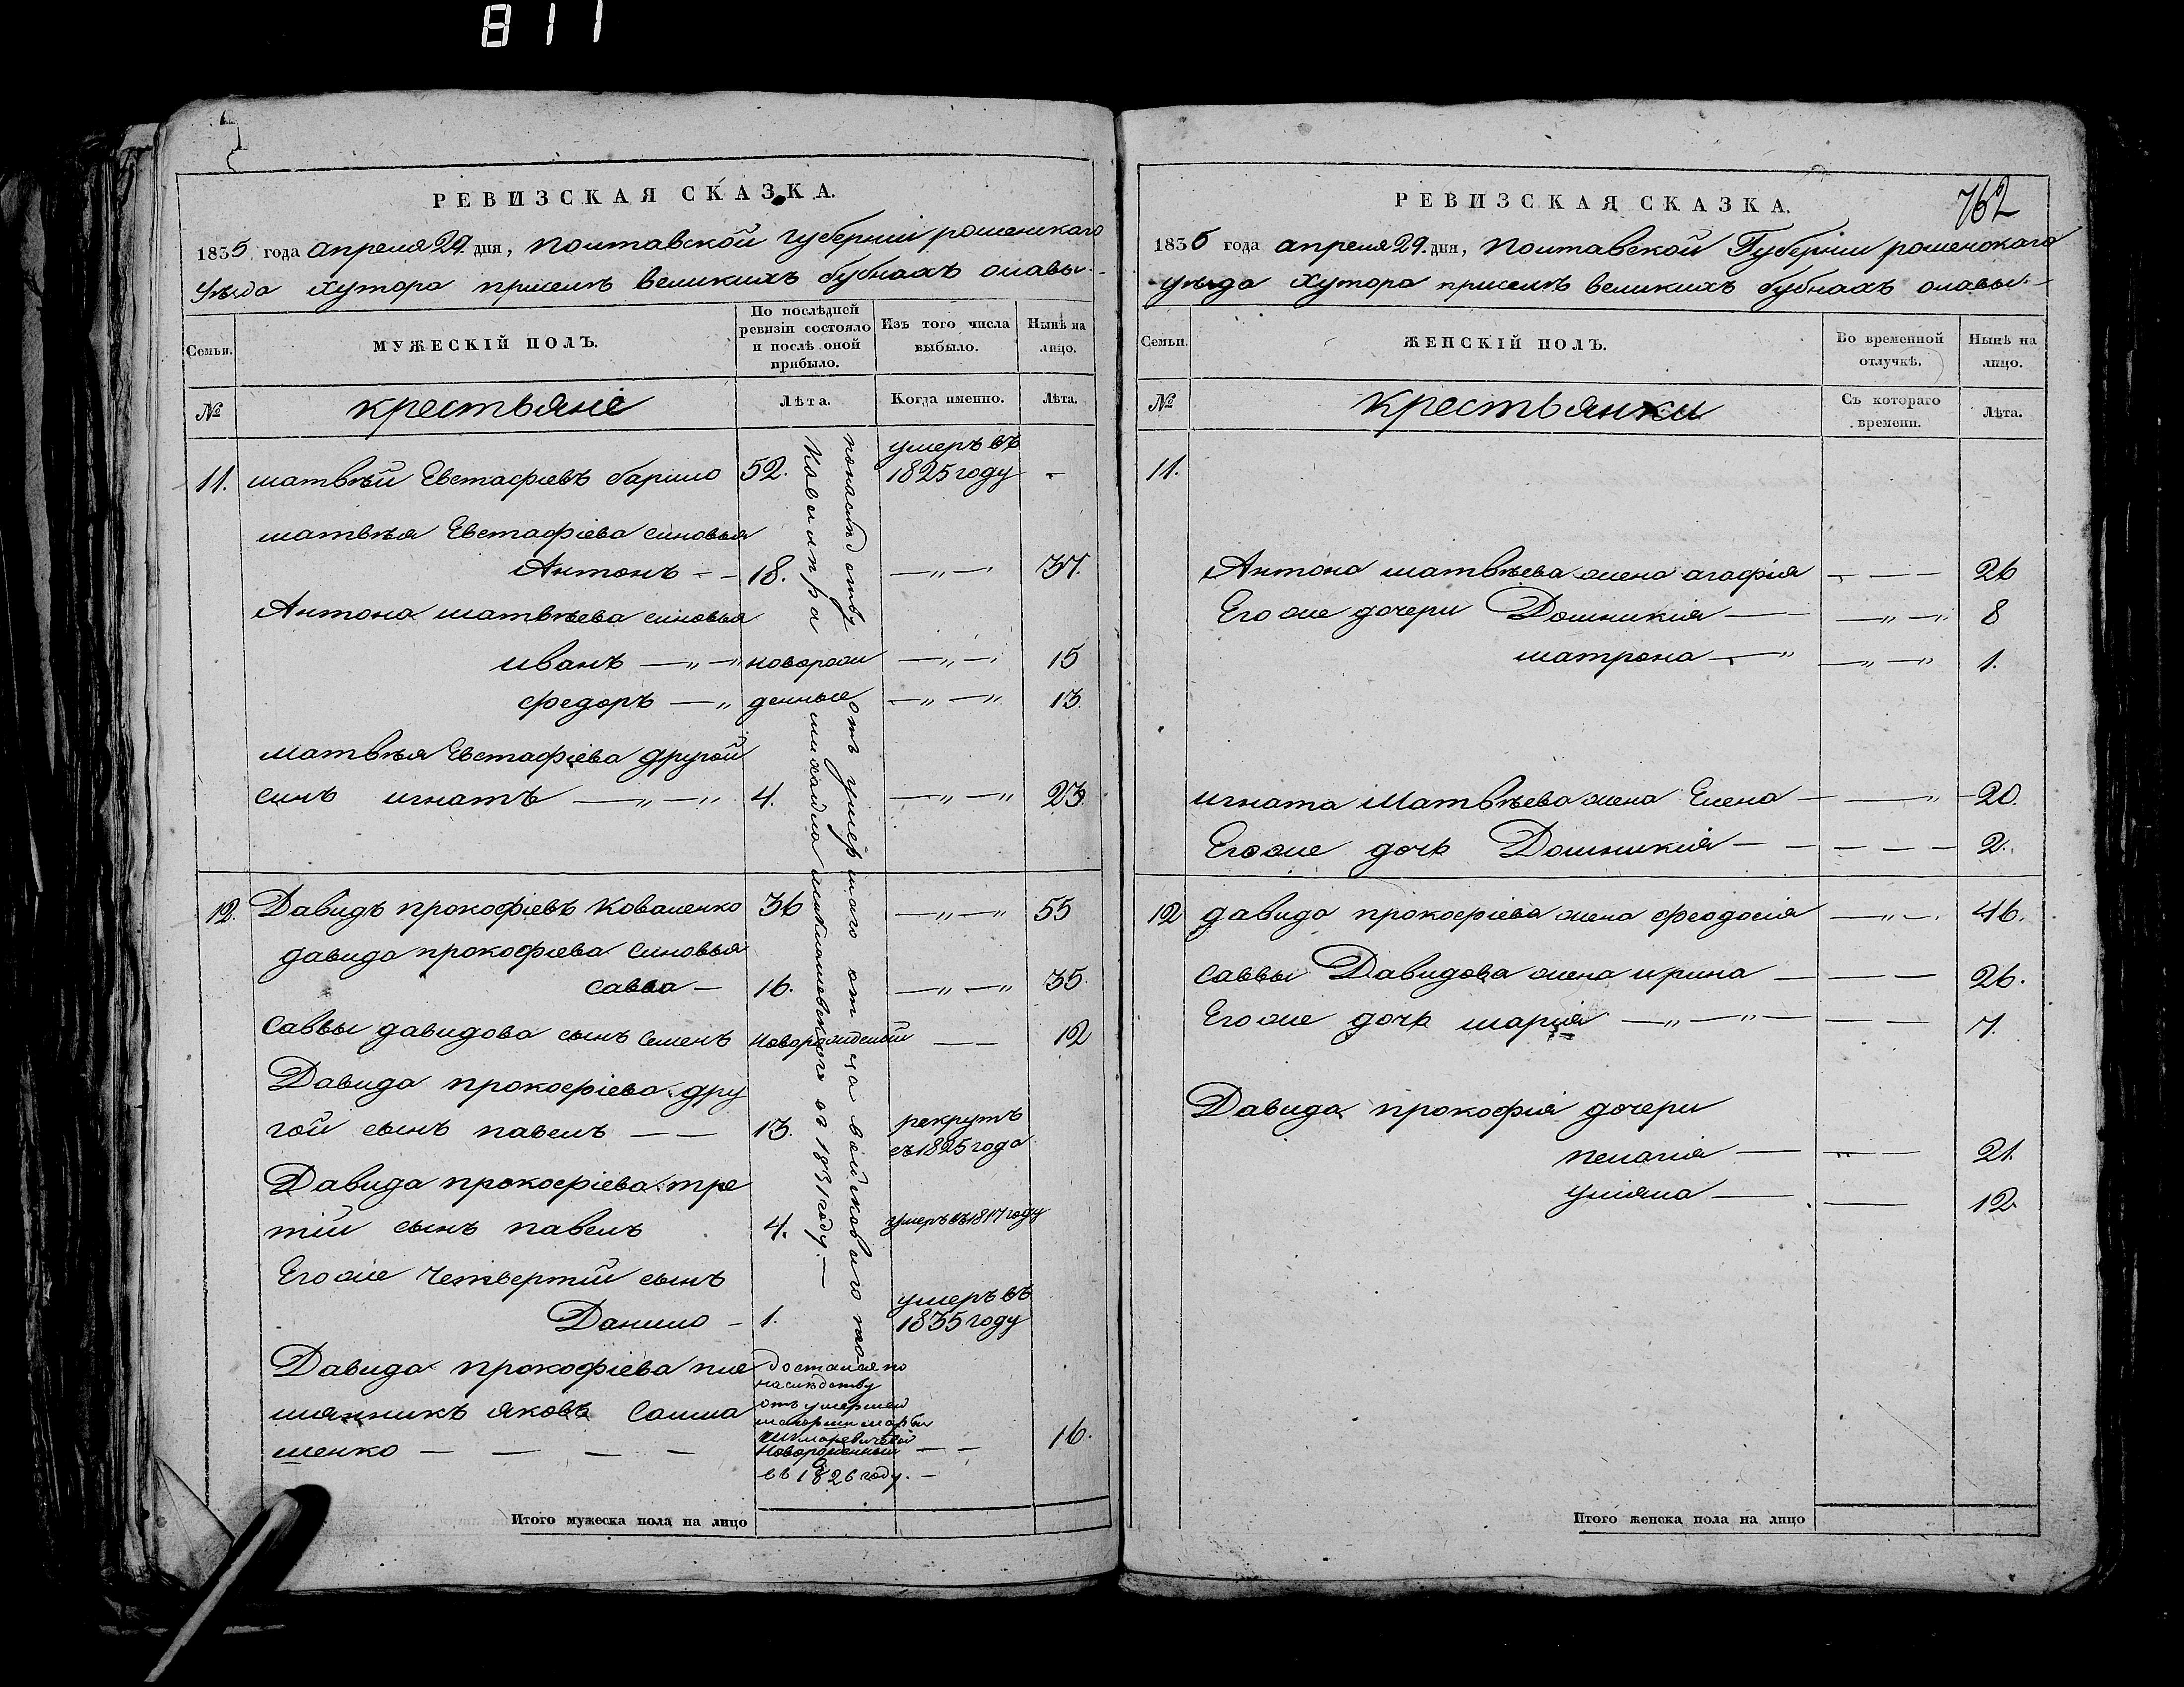 811
РЕВИЗСКАЯ СКАЗКА.
1835 года апреля 29. дня, полтавской губерніи роменскаго
уѣзда хутора приселк великихъ бубнахъ
Семьи.
МУЖЕСКІЙ ПОЛЪ.
По послѣдней ревизіи состояло и послѣ оной прибыло.
Изъ того числа выбыло.
Нынѣ на лицо.
№
крестьяне
Лѣта.
Когда именно.
Лѣта.
11. матвѣй Евстафіевъ 52. умеръ въ 1825 году -
матвѣя Евстафіева синовья
Антонъ — 18. —„— 37.
Антона матвѣева синовья
иванъ —„—„ новорож —„— 15
федоръ —„ денные —„—„ 13.
матвѣя Евстафіева другой
синъ игнатъ —„—„ 4. —„—„ 23.
12. Давидъ прокофіевъ Коваленко 36 —„—„ 55
давида прокофіева синовья
савва — 16. —„—„ 35.
саввы давидова сынъ семенъ новорожденый — 12
Давида прокофіева дру
гой сынъ павелъ — — 13. рекрутъ съ 1825 года
Давида прокофіева тре
тій сынъ павелъ 4. умеръ въ 1817 году
Егоже четвертій сынъ
Данило — 1. умеръ въ 1835 году
Давида прокофіева пле
мянникъ яковъ
шенко — — — —
достался по
наслѣдству
отъ умершей
новорожденный — — 16.
въ 1826 году. —
понаслѣдству отъ умершаго отца войсковаго
михайла от 1831 году. —
Итого мужеска пола на лицо
РЕВИЗСКАЯ СКАЗКА.
762
1835 года апреля 29. дня, полтавской Губерніи роменскаго
уѣзда хутора приселк великихъ бубнахъ
Семьи.
ЖЕНСКІЙ ПОЛЪ.
Во временной отлучкѣ.
Нынѣ на лицо.
№
крестьянки
Съ котораго времени.
Лѣта.
11.
Антона матвѣева жена агафія — — — 26
Егоже дочери Домникія — —„—„ 8
матрона —„ —„—„ 1.
игната Матвѣева жена Елена — —„ 20.
Егоже дочь Домникія — — — — — 2.
12 давида прокофіева жена феодосія —„—. 46.
саввы Давидова жена ирина — — — 26.
Егоже дочь марія —„—„— — — 7.
Давида прокофія дочери
пелагія — —„— 21.
уліяна — — 12.
Итого женска пола на лицо